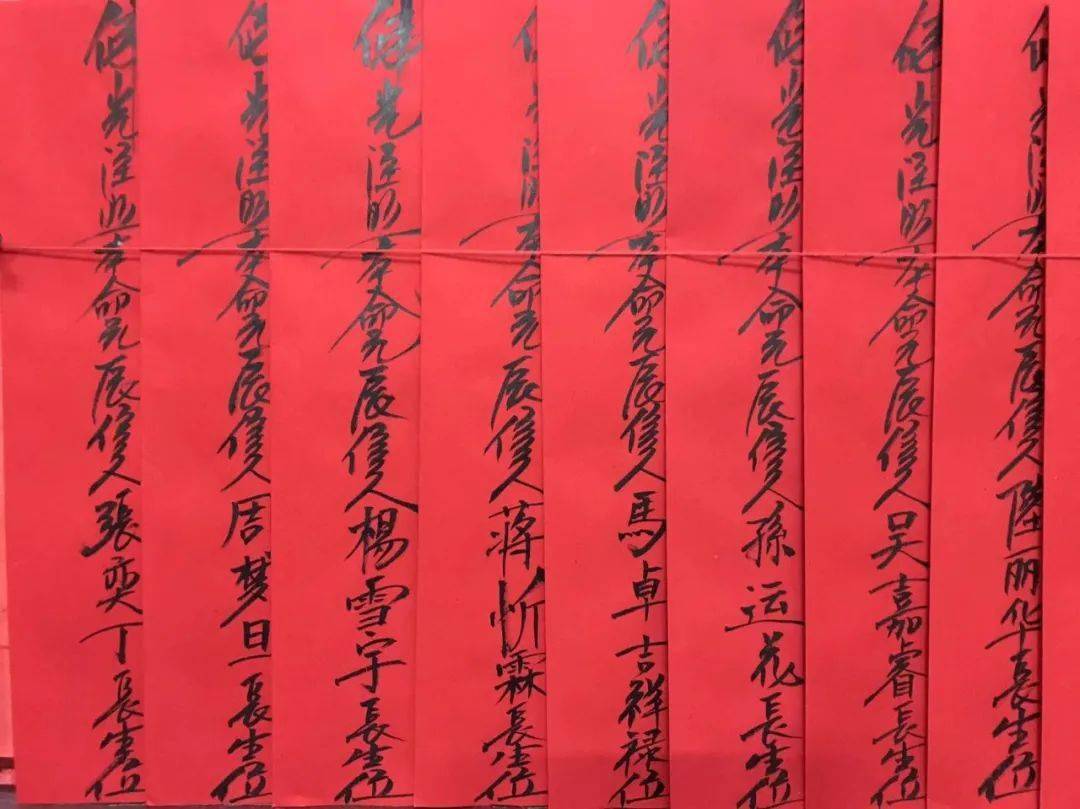 佛光注照本命元辰信人陸丽华長生位
佛光注照本命元辰信人吴嘉睿長生位
佛光注照本命元辰信人孫运花長生位
佛光注照本命元辰信人馬卓吉祥禄位
佛光注照本命元辰信人蒋忻霖長生位
佛光注照本命元辰信人楊雪宇長生位
佛光注照本命元辰信人周梦旦長生位
佛光注照本命元辰信人張奕丁長生位